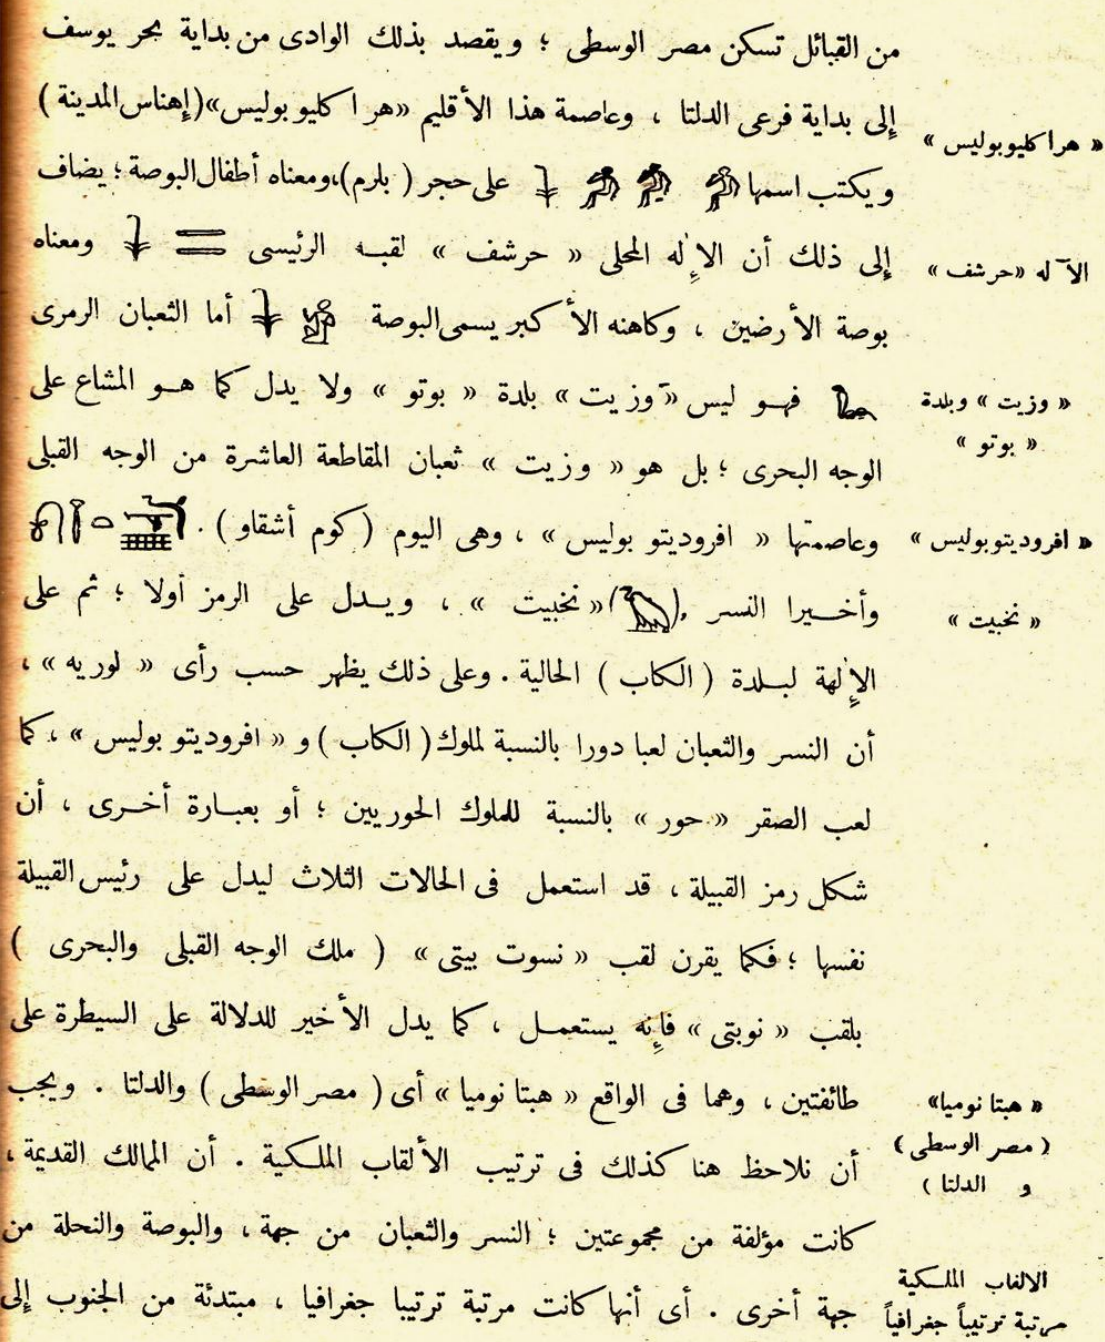 من القبائل تسكن مصر الوسطى ؛ ويقصد بذلك الوادى من بداية بحر يوسف
إلى بداية فرعى الدلتا ، وعاصمة هذا الأقليم «هراكليوبوليس»(إهناس المدينة)
« هراكليوبوليس »
ويكتب اسمها على حجر ( بلرم)،ومعناه أطفال البوصة ؛ يضاف
إلى ذلك أن الاٍله المحلى « حرشف » لقبه الرئيسى ومعناه
الآله «حرشف »
بوصة الأرضين ، وكاهنه الأكبر يسمى البوصة أما الثعبان الرمزى
فهو ليس « وزيت » بلدة « بوتو » ولا يدل كما هو المشاع على
« وزيت » وبلدة
« بوتو »
الوجه البحرى ؛ بل هو « وزيت » ثعبان المقاطعة العاشرة من الوجه القبلى
وعاصمتها « افروديتو بوليس » ، وهى اليوم ( كوم أشقاو ) .
« افروديتوبوليس »
وأخيرا النسر ( )« نخبيت » ، ويدل على الرمز أولا ؛ ثم على
« نخبيت »
الإلهة لبلدة ( الكاب ) الحالية . وعلى ذلك يظهر حسب رأى « لوريه » ،
أن النسر والثعبان لعبا دورا بالنسبة لملوك ( الكاب ) و « افروديتو بوليس » ، كما
لعب الصقر « حور » بالنسبة للملوك الحوريين ؛ أو بعبارة أخرى ، أن
شكل رمز القبيلة ، قد استعمل فى الحالات الثلاث ليدل على رئيس القبيلة
نفسها ؛ فكما يقرن لقب « نسوت بيتى » ( ملك الوجه القبلى والبحرى )
بلقب « نوبتى » فإنه يستعمل ، كما يدل الأخير للدلالة على السيطرة على
طائفتين ، وهما فى الواقع « هبتا نوميا » أى ( مصر الوسطى ) والدلتا . ويجب
« هبتا نوميا»
( مصر الوسطى )
و الدلتا )
أن نلاحظ هنا كذلك فى ترتيب الألقاب الملكية . أن الممالك القديمة ،
كانت مؤلفة من مجموعتين ؛ النسر والثعبان من جهة ، والبوصة والنحلة من
جهة أخرى . أى أنها كانت مرتبة ترتيبا جغرافيا ، مبتدئة من الجنوب إلى
الالقاب الملكية
مرتبة ترتيباً جغرافياً